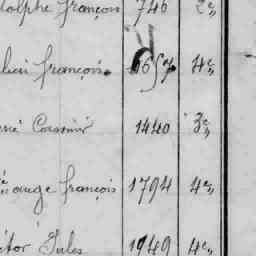 dolphe françois 746 2e
lien françois 657 4e
ené Casimir 1440 3e
érouge françois 1794 4e
ictor Jules 1949 4e